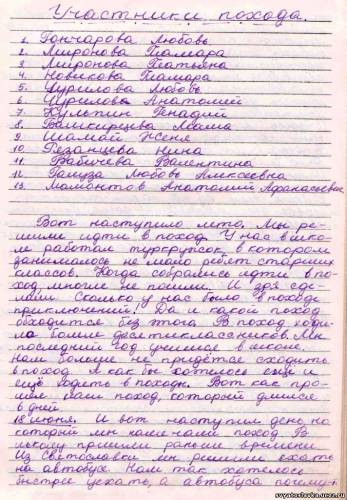 Участники похода.
1. Гончарова Любовь
2. Миронова Тамара
3. Миронова Татьяна
4. Новикова Тамара
5. Чурилова Любовь
6. Чурилов Анатолий
7. Культин Генадий
8. Башкирцева Маша
9. Шамай Женя
10. Резанцева Нина
11. Бабичева Валентина
12. Галуза Любовь Алексеевна
13. Мамонтов Анатолий Афанасьевич
Вот наступило лето. Мы ре-
шили идти в поход. У нас в шко-
ле работал туркружок, в котором
занималось не мало ребят старших
классов. Когда собрались идти в по-
ход, многие не пошли. И зря сде-
лали. Сколько у нас было в походе
приключений! Да и какой поход
обходится без этого. В поход ходи-
ла больше десятиклассников. Мы
последний год учились в школе.
Нам больше не придётся сходить
в поход. А как бы хотелось ещё и
ещё ходить в походы. Вот как про-
шёл наш поход, который длился
6 дней.
18 июня. И вот наступил день, на
который мы наш поход. В
школу пришли раньше времени.
Из Святославки мы решили ехать
на автобусе. Нам так хотелось
быстрее уехать, а автобуса почему-
svyatoslavka.ucoz.ru